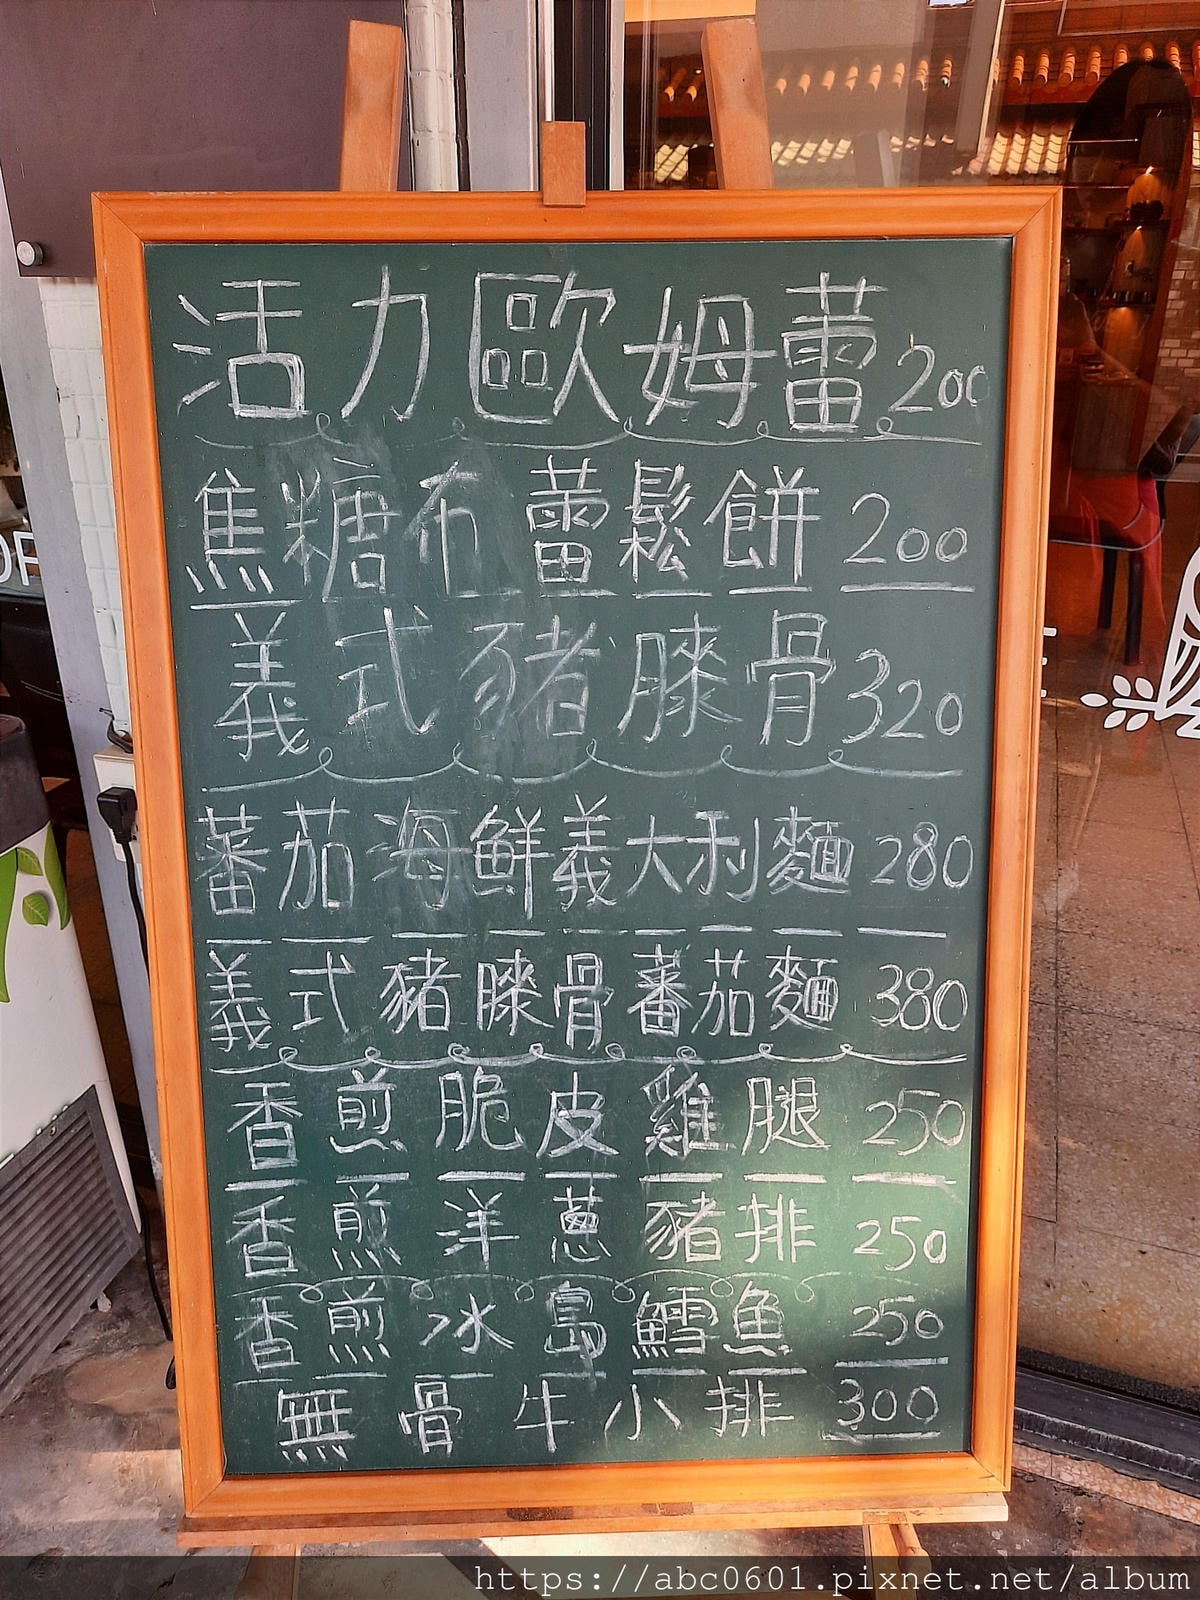 活力歐姆蕾 200
焦糖布蕾鬆餅 200
義式豬膝骨 320
蕃茄海鮮義大利麵 280
義式豬膝骨蕃茄麵 380
香煎脆皮雞腿 250
香煎洋蔥豬排 250
香煎冰島鱈魚 250
無骨牛小排 300
https://abc0601.pixnet.net/album